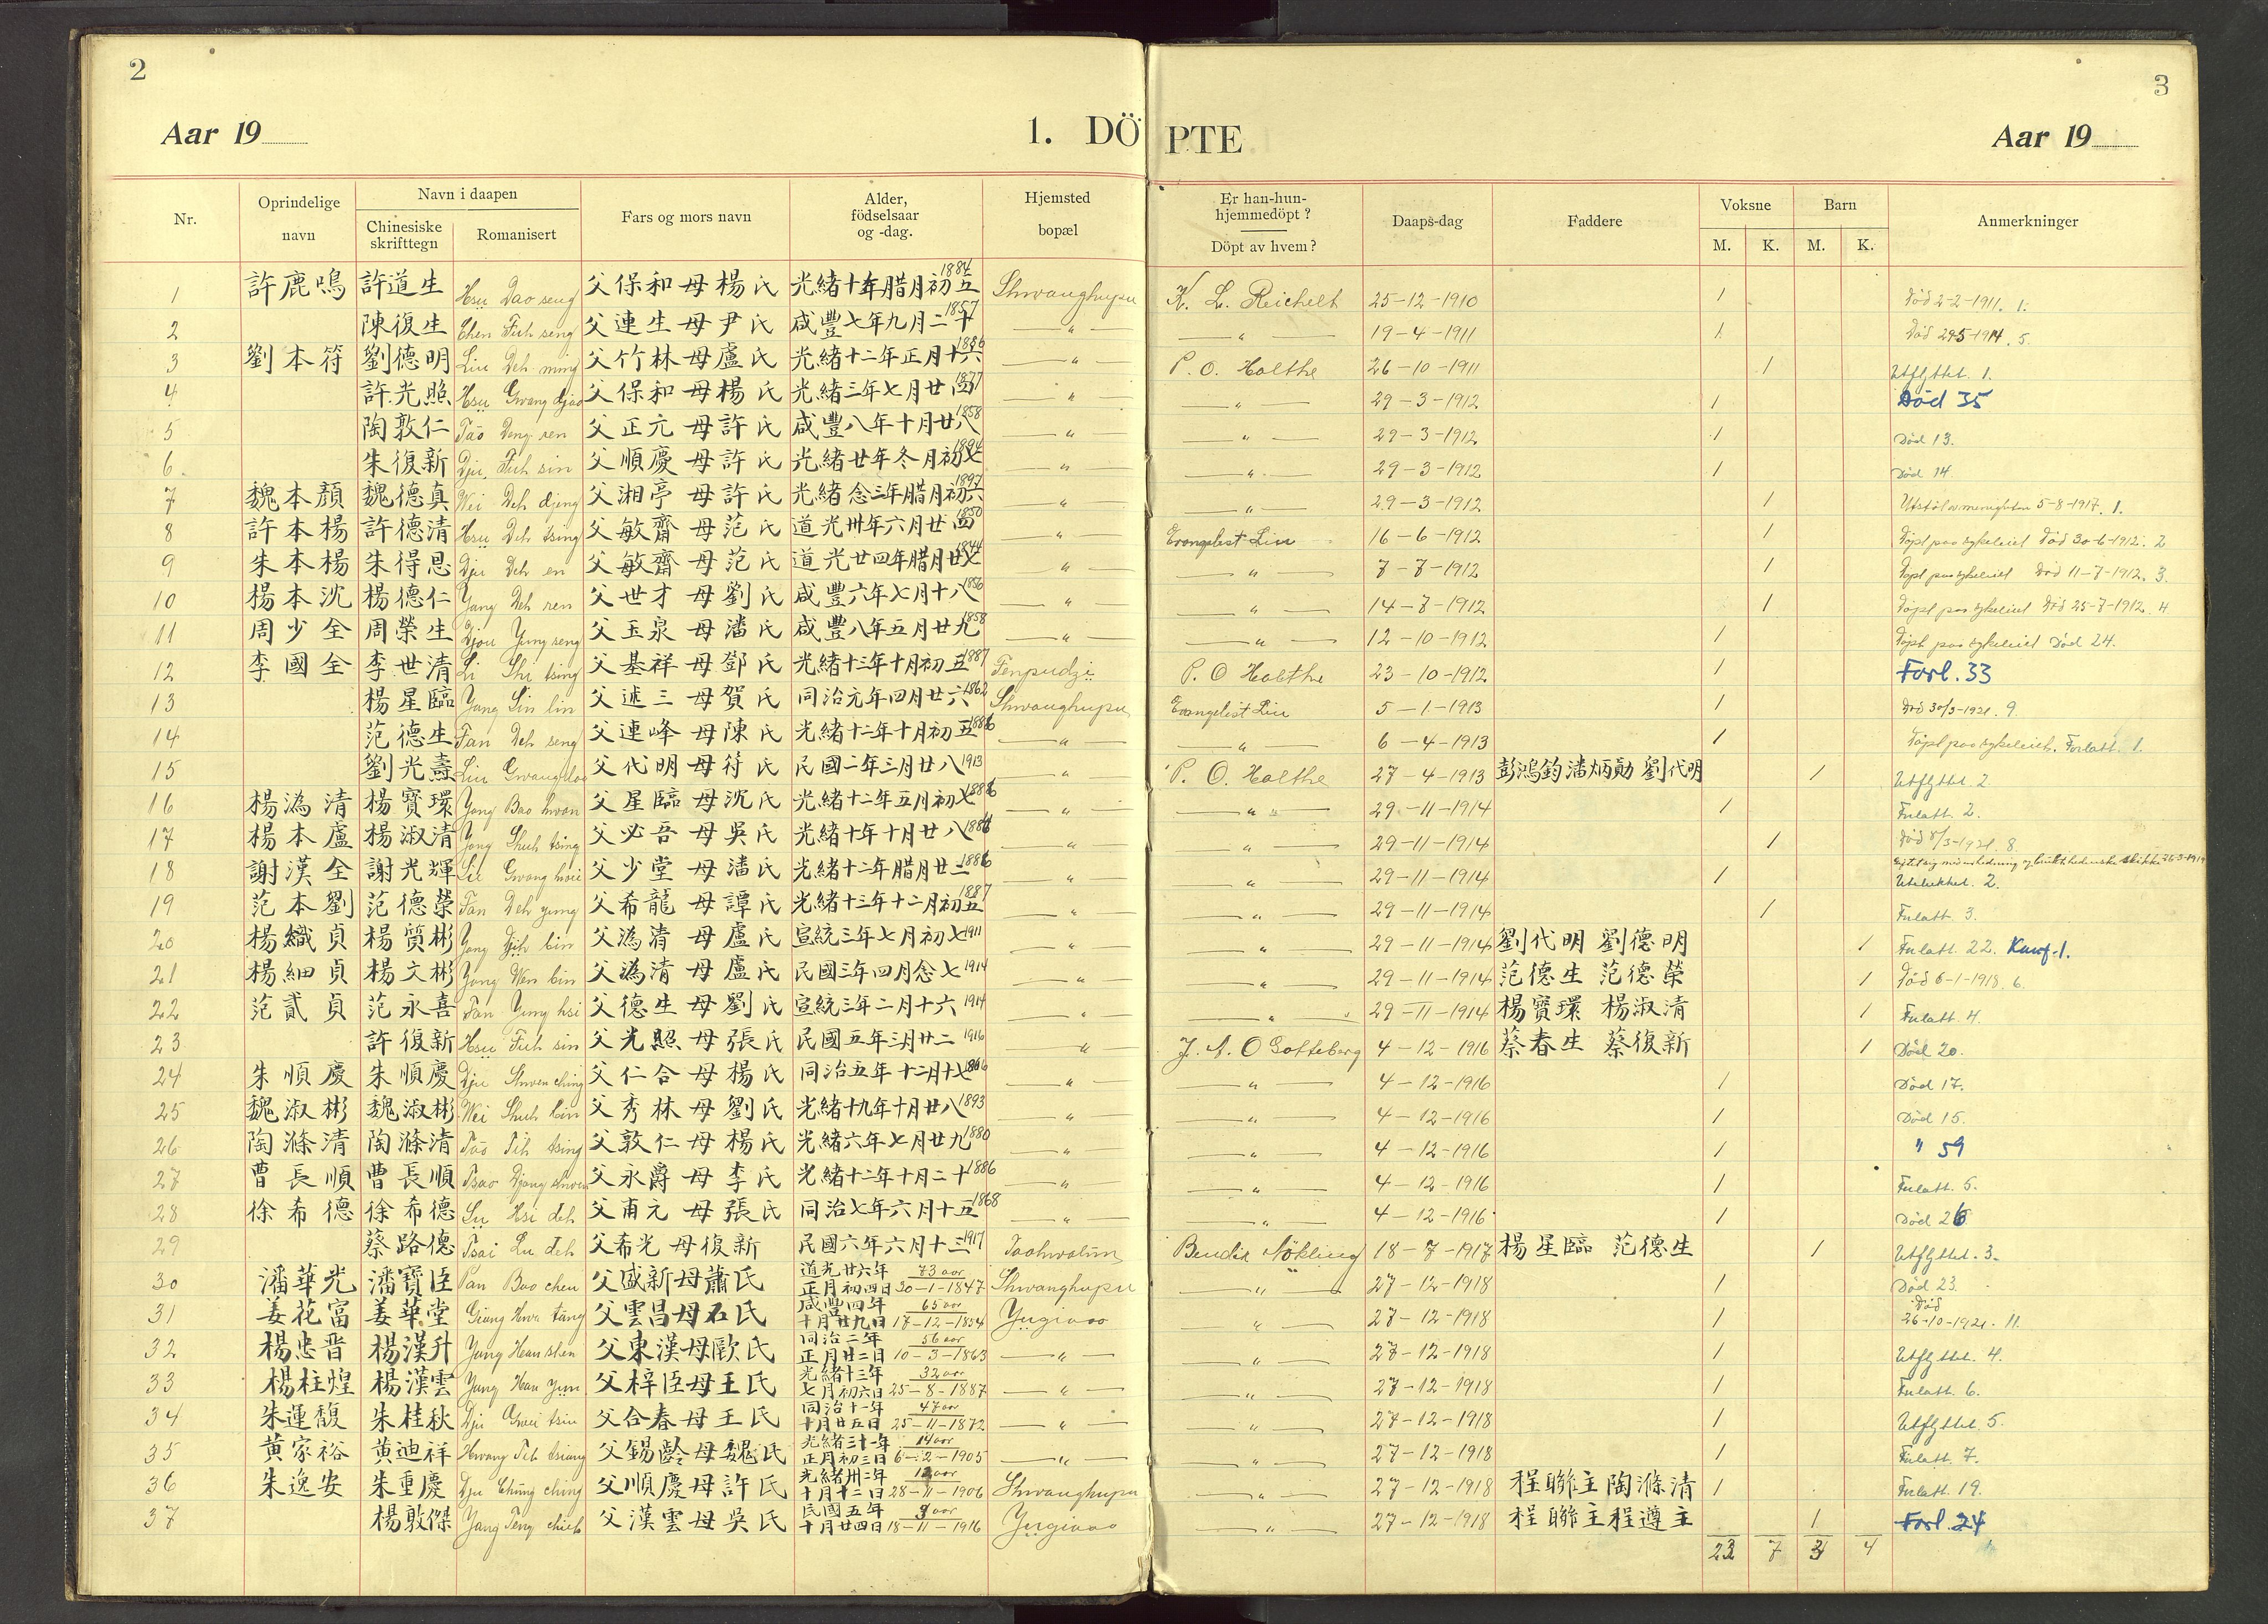 2
3
Aar 19
1. DÖPTE
Aar 19
Nr. Oprindelige navn Navn i daapen Chinesiske skrifttegn Romanisert Fars og mors navn Alder, födselsaar og -dag. Hjemsted bopæl Er han-hun-hjemmedöpt? Döpt av hvem? Daaps-dag Faddere Voksne M. K. Barn M. K. Anmerkninger
1 許鹿鳴 許道生 Hsu Dao seng 父保和母楊氏 光緒十年腊月初五 1884 Shwanghupu K. L. Reichelt 25-12-1910 1 Död 2-2-1911. 1.
2 陳復生 Chen Fuh seng 父連生母尹氏 咸豐七年九月二十 1857 —〃— —〃— 19-4-1911 1 Död 29-5-1914. 5.
3 劉本符 劉德明 Liu Deh ming 父竹林母盧氏 光緒十二年正月十六 1886 —〃— P. O. Holthe 26-10-1911 1 Utflyttet. 1.
4 許光照 Hsu Gwang djao 父保和母楊氏 光緒三年七月廿四 1877 —〃— —〃— 29-3-1912 1 Död 35
5 陶敦仁 Tao Deng ren 父正元母許氏 咸豐八年十月廿八 1858 —〃— —〃— 29-3-1912 1 Död 13.
6 朱復新 Dju Fuh sin 父順慶母許氏 光緒廿年冬月初七 1894 —〃— —〃— 29-3-1912 1 Död 14
7 魏本顏 魏德真 Wei Deh djeng 父湘亭母許氏 光緒念三年腊月初六 1897 —〃— —〃— 29-3-1912 1 5-8-1917. 1.
8 許本楊 許德清 Hsu Deh tsing 父敏齋母范氏 道光卅年六月廿四 1850 —〃— Evangelist Liu 16-6-1912 1 Döpt paa sykeleiet Död 30-6-1912. 2
9 朱本楊 朱得恩 Dju Deh en 父敏齋母范氏 道光廿四年腊月廿七 1844 —〃— —〃— 7-7-1912 1 Döpt paa sykeleiet Död 11-7-1912. 3.
10 楊本沈 楊德仁 Yang Deh ren 父世才母劉氏 咸豐六年七月十八 1856 —〃— —〃— 14-7-1912 1 Döpt paa sykeleiet Död 25-7-1912. 4
11 周少全 周榮生 Djou Yung seng 父玉泉母潘氏 咸豐八年五月廿九 1858 —〃— —〃— 12-10-1912 1 Döpt paa sykeleiet Död 24.
12 李國全 李世清 Li Shi tsing 父基祥母鄧氏 光緒十三年十月初五 1887 Fenpudzi P. O Holthe 23-10-1912 1 Forl. 33
13 楊星臨 Yang Sin lin 父述三母賀氏 同治元年四月廿六 1862 Shwanghupu Evangelist Liu 5-1-1913 1 Död 30/3-1921. 9.
14 范德生 Fan Deh seng 父連峰母陳氏 光緒十二年十月初五 1886 —〃— —〃— 6-4-1913 1 Döpt paa sykeleiet. Forlatt. 1.
15 劉光壽 Liu Gwang 父代明母符氏 民國二年三月廿八 1913 —〃— P. O. Holthe 27-4-1913 彭鴻鈞 潘炳勛 劉代明 1 Utflyttet 2
16 楊溈清 楊寶環 Yang Bao hwan 父星臨母沈氏 光緒十二年五月初七 1886 —〃— —〃— 29-11-1914 1 Forlatt. 2.
17 楊本盧 楊淑清 Yang Shuh tsing 父必吾母吳氏 光緒十年十月廿八 —〃— —〃— 29-11-1914 1 Död 8/3-1921. 8.
18 謝漢全 謝光輝 Gwang hwei 父少堂母潘氏 光緒十二年腊月廿二 1886 —〃— —〃— 29-11-1914 1 Utelukket. 2.
19 范本劉 范德榮 Fan Deh yung 父希龍母譚氏 光緒十三年十二月初五 1887 —〃— —〃— 29-11-1914 1 Forlatt. 3.
20 楊織貞 楊質彬 Yang Djih bin 父溈清母盧氏 宣統三年七月初七 1911 —〃— 29-11-1914 劉代明 劉德明 1 Forlatt. 22. Konf. 1.
21 楊細貞 楊文彬 Yang Wen bin 父溈清母盧氏 民國三年四月念七 1914 —〃— —〃— 29-11-1914 范德生 范德榮 1 Död 6-1-1918. 6.
22 范貳貞 范永喜 Fan Yung hsi 父德生母劉氏 宣統三年二月十六 1914 —〃— —〃— 29-11-1914 楊寶環 楊淑清 1 Forlatt. 4.
23 許復新 Hsu Fuh sin 父光照母張氏 民國五年三月廿二 1916 —〃— J. A. O Gotteberg 4-12-1916 蔡春生 蔡復新 1 Död 20.
24 朱順慶 朱順慶 Dju Shwen ching 父仁合母楊氏 同治五年十二月十七 1866 —〃— —〃— 4-12-1916 1 Död 17.
25 魏淑彬 魏淑彬 Wei Shuh bin 父秀林母劉氏 光緒十九年十月廿八 1893 —〃— —〃— 4-12-1916 1 Död 15.
26 陶滌清 陶滌清 Tao Tih tsing 父敦仁母楊氏 光緒六年七月廿九 1880 —〃— —〃— 4-12-1916 1 〃 59
27 曹長順 曹長順 Tsao Djang shwen 父永爵母李氏 光緒十二年十月二十 1886 —〃— —〃— 4-12-1916 1 Forlatt. 5.
28 徐希德 徐希德 Su Hsi deh 父甫元母張氏 同治七年六月十五 1868 —〃— —〃— 4-12-1916 1 Död 26
29 蔡路德 Tsai Lu deh 父希光母復新 民國六年六月十三 1917 Taohwalun Bendik Nökling 18-7-1917 楊星臨 范德生 1 Utflyttet. 3.
30 潘華光 潘寶臣 Pan Bao chen 父盛新母蕭氏 道光廿六年正月初四日 73 aar 20-1-1847 Shwanghupu —〃— 27-12-1918 1 Död 23.
31 姜花富 姜華堂 Giang Hwa tang 父雲昌母石氏 咸豐四年十月廿九日 65 aar 17-12-1854 Yugiaao —〃— 27-12-1918 1 Död 26-10-1921. 11.
32 楊忠晋 楊漢升 Yang Han shen 父東漢母歐氏 同治二年正月廿二日 56 aar 10-3-1863 —〃— —〃— 27-12-1918 1 Utflyttet. 4.
33 楊柱煌 楊漢雲 Yang Han yun 父梓臣母王氏 光緒十三年七月初六日 32 aar 25-8-1887 —〃— —〃— 27-12-1918 1 Forlatt. 6.
34 朱運馥 朱桂秋 Dju Gwei tsiu 父合春母王氏 同治十一年十月廿五日 47 aar 25-11-1872 —〃— —〃— 27-12-1918 1 Utflyttet. 5.
35 黄家裕 黄迪祥 Hwang Tih tsiang 父錫齡母魏氏 光緒三十一年正月初三日 14 aar 6-2-1905 —〃— —〃— 27-12-1918 1 Forlatt. 7.
36 朱逸安 朱重慶 Dju Chung ching 父順慶母許氏 光緒卅二年十月十二日 aar 28-11-1906 Shwanghupu —〃— 27-12-1918 程聯主 陶滌清 1 Forlatt. 19.
37 楊敢傑 Yang Teng chieh 父漢雲母吳氏 民國五年十月廿四日 3 aar 18-11-1916 Yugiaao —〃— 27-12-1918 程聯主 程遵主 1 Forl. 24
23 7 3 4